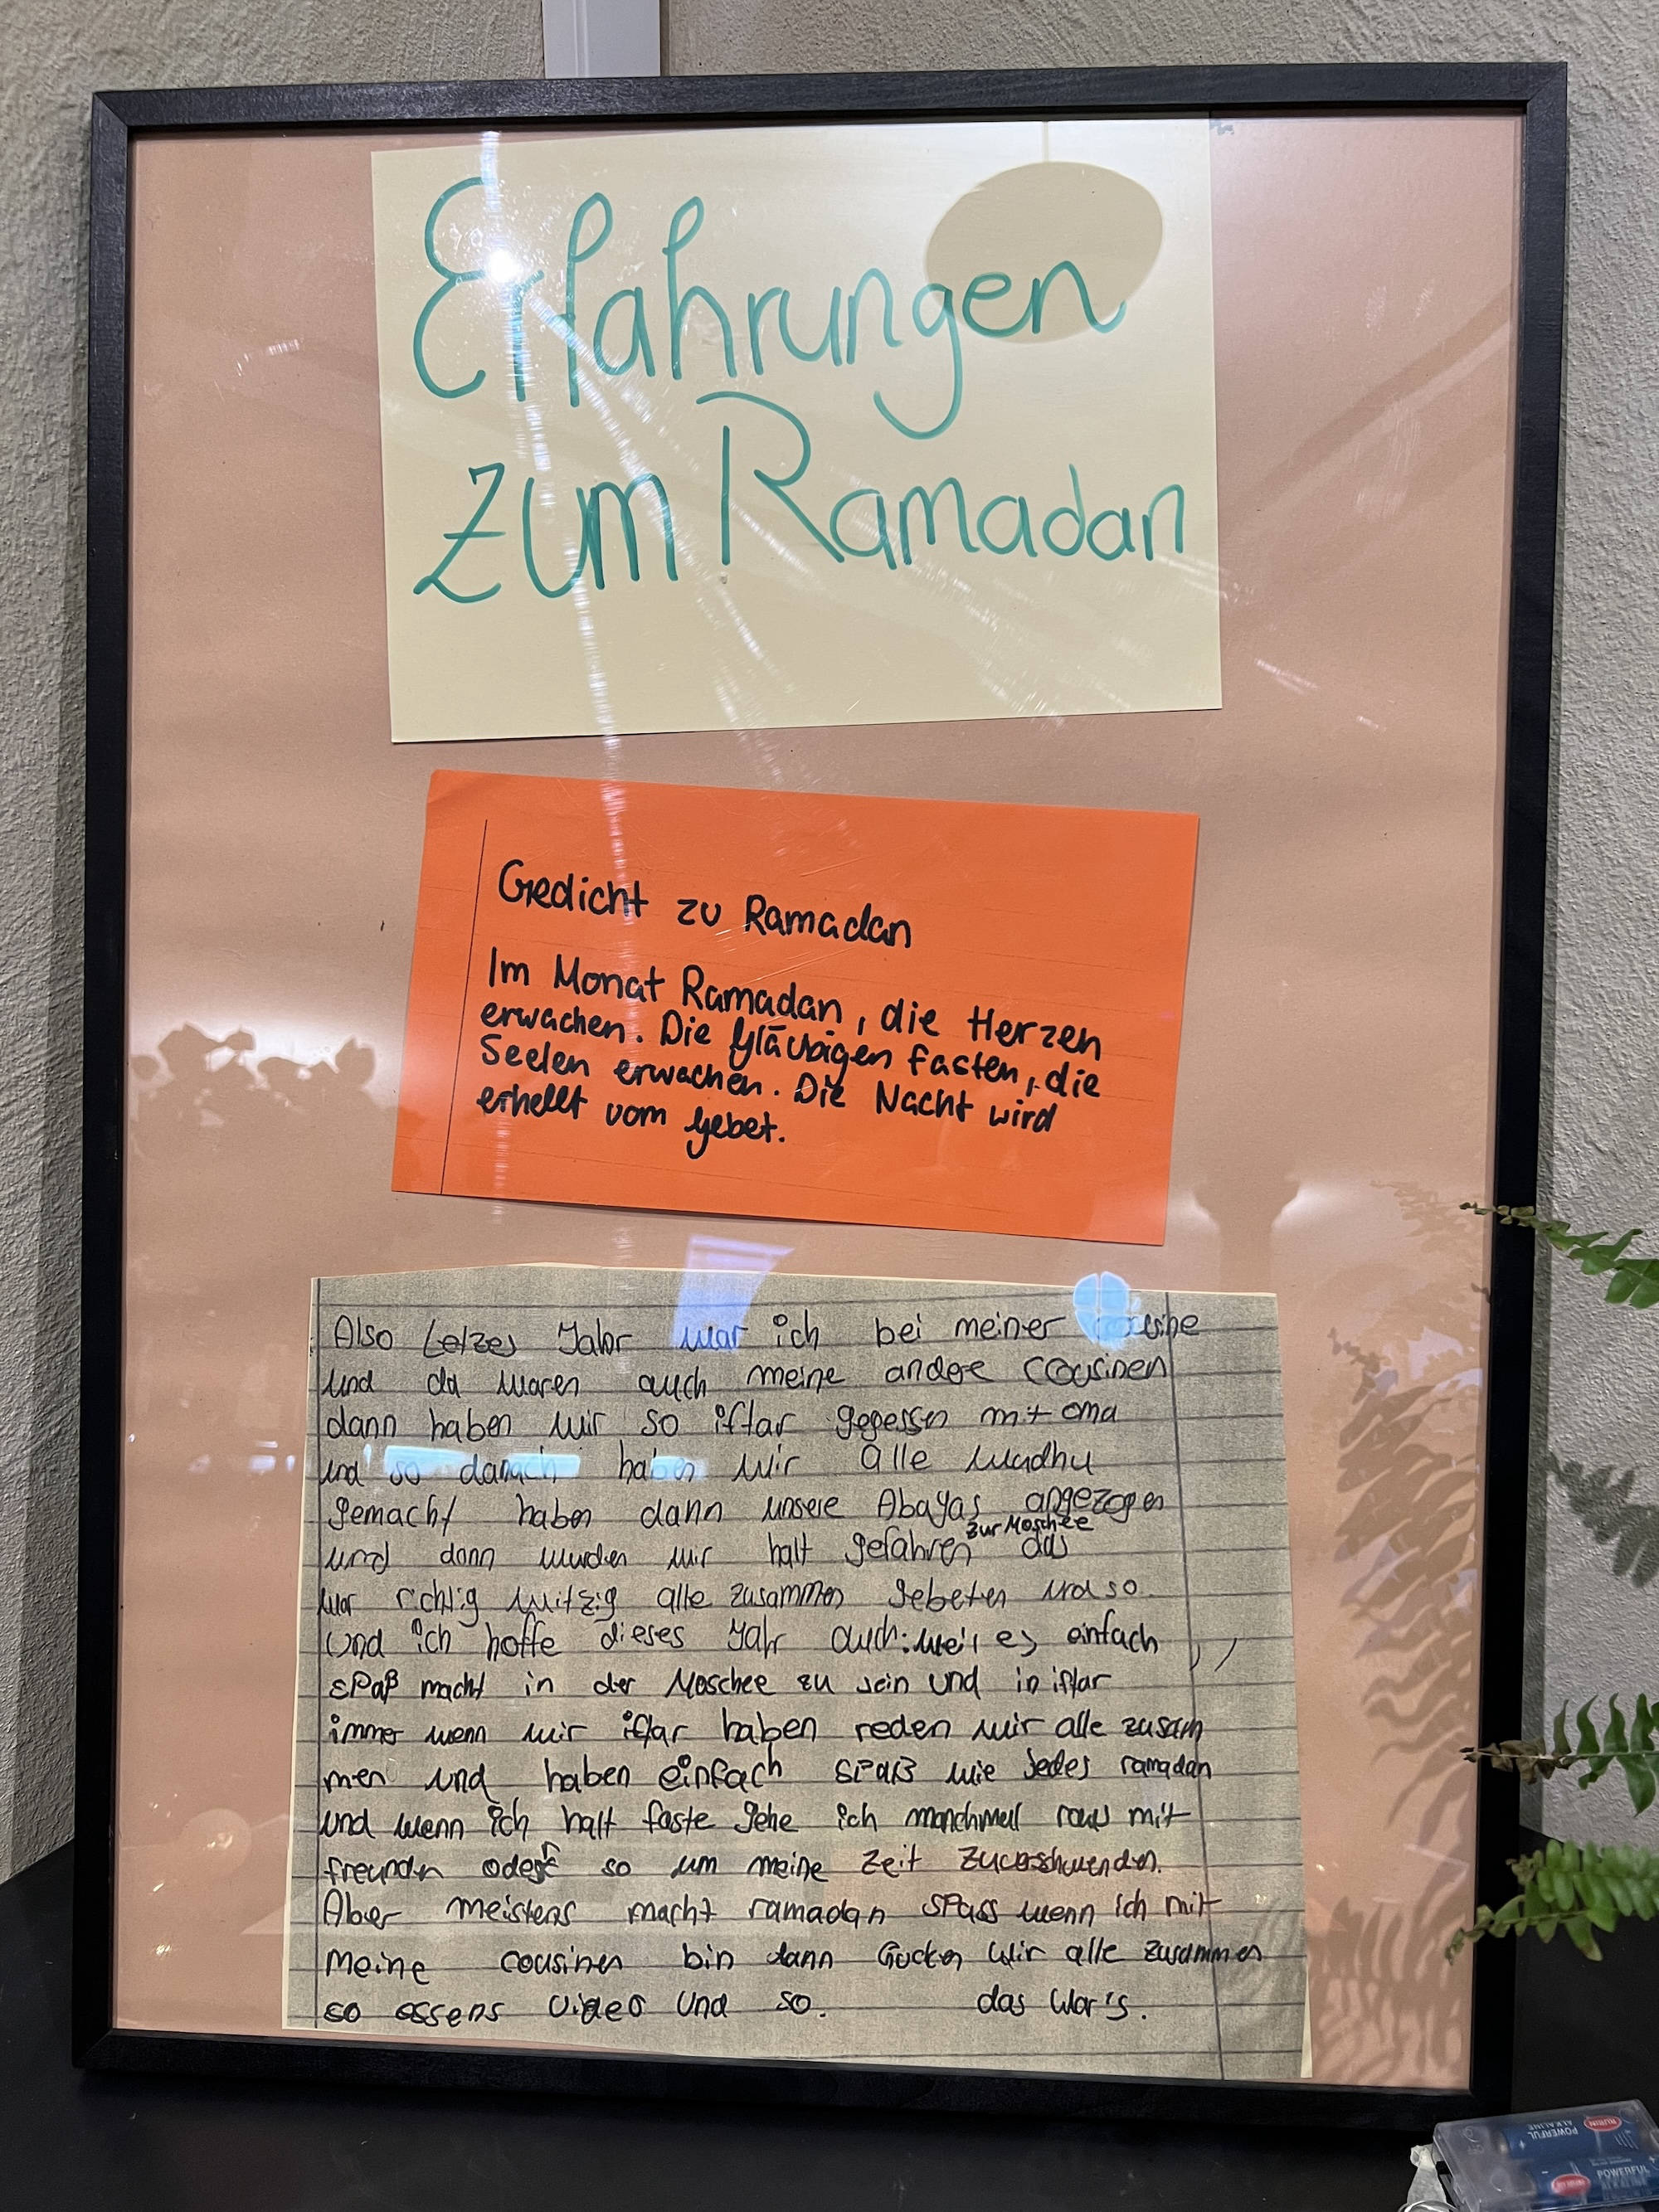 Erfahrungen
zum Ramadan
Gedicht zu Ramadan
Im Monat Ramadan, die Herzen
erwachen. Die Gläubigen fasten, die
Seelen erwachen. Die Nacht wird
erhellt vom Gebet.
Also letzes Jahr war ich bei meiner
und da waren auch meine andere cousinen
dann haben wir so iftar gegessen mit oma
und so danach haben wir alle wudhu
gemacht haben dann unsere Abayas angezogen
zur Moschee
und dann wurden wir halt gefahren das
war richtig witzig alle zusammen gebeten und so.
Und ich hoffe dieses Jahr auch. weil es einfach
sPaß macht in der Moschee zu sein und in iftar
immer wenn wir iftar haben reden wir alle zusam
men und haben einfach sPaß wie Jedes ramadan
und wenn ich halt faste gehe ich manchmall raus mit
freunden oder so um meine Zeit zuverschwenden.
Aber meistens macht ramadan sPass wenn ich mit
meine cousinen bin dann Gucken wir alle zusammen
so essens video und so. das War's.
POWERFUL
ALKALINE
POWERFUL